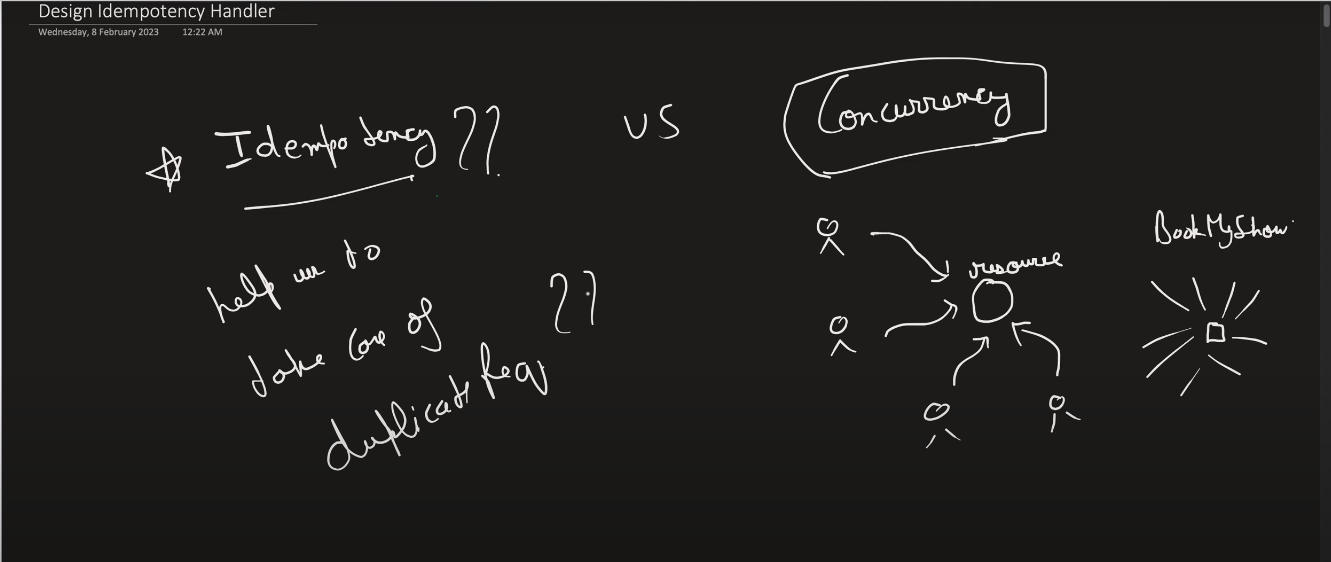 Design Idempotency Handler
Wednesday, 8 February 2023 12:22 AM
Idempotency ??
vs
Concurrency
help us to
take care of
duplicate Req
??
resource
BookMyShow